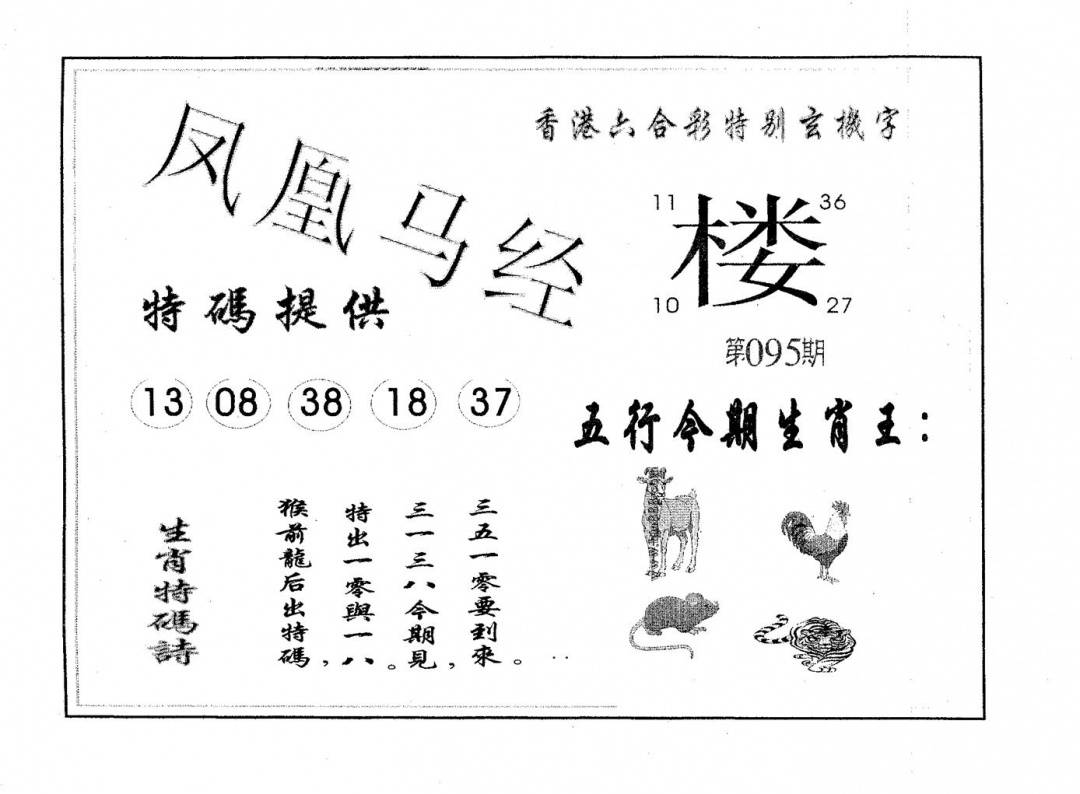 凤凰马经
香港六合彩特别玄機字
11 楼 36
10 27
第095期
特碼提供
13 08 38 18 37
五行今期生肖王：
生肖特碼詩
猴前龍后出特碼，
特出一零與一八。
三一三八今期見，
三五一零要到來。